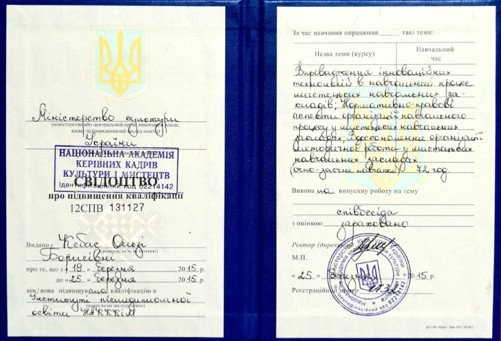 Міністерство культури
України
НАЦІОНАЛЬНА АКАДЕМІЯ
КЕРІВНИХ КАДРІВ
КУЛЬТУРИ І МИСТЕЦТВ
Ідентифікаційний код 02214142
СВІДОЦТВО
про підвищення кваліфікації
12СПВ 131127
Видано
Борисівні
про те, що з „19" березня 2015 р.
до „25" березня 2015 р.
він / вона підвищувала кваліфікацію в
Інституті післядипломної
освіти НАКККіМ
За час навчання опрацював такі теми:
Назва теми (курсу)
Навчальний
час
Впровадження інноваційних
технологій в навчальний процес
мистецьких навчальних за-
кладів; Нормативно-правові
аспекти організації навчального
процесу у мистецьких навчальних
закладах; Вдосконалення організації
методичної роботи у мистецьких
навчальних закладах
72 год.
Виконала випускну роботу на тему
співбесіда
з оцінкою зараховано
Ректор (директор)
М.П.
„25" березня 2015 р.
Реєстраційний